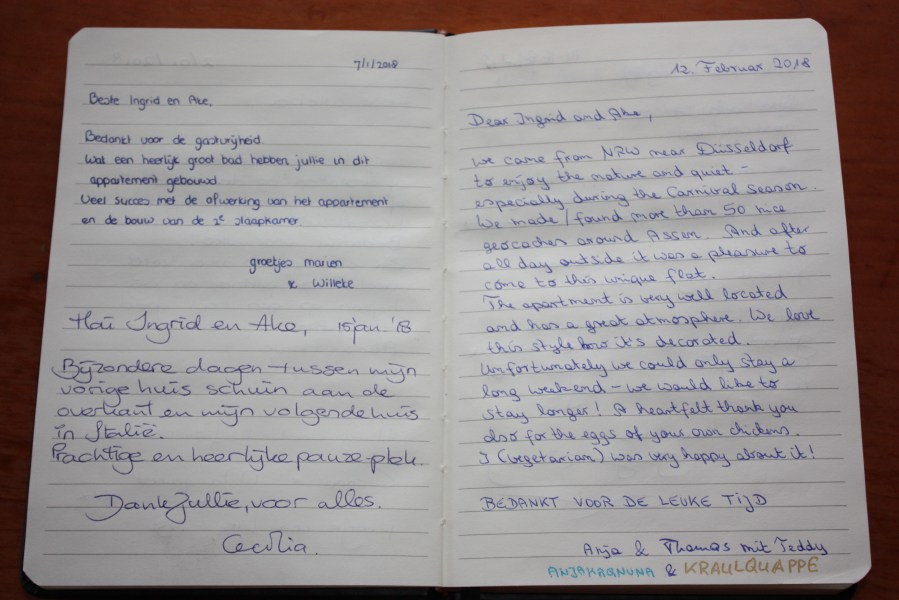 7/1/2018
Beste Ingrid en Ake,
Bedankt voor de gastvrijheid.
Wat een heerlijk groot bad hebben jullie in dit
appartement gebouwd.
Veel succes met de afwerking van het appartement
en de bouw van de 2e slaapkamer.
groetjes Marien
& Willeke
Hai Ingrid en Ake, 15 jan. '18
Bijzondere dagen tussen mijn
vorige huis schuin aan de
overkant en mijn volgende huis
in Italië.
Prachtige en heerlijke pauze-plek.
Dank jullie, voor alles.
Cecilia.
12. Februar 2018
Dear Ingrid and Ake,
we came from NRW near Düsseldorf
to enjoy the nature and quiet -
especially during the Carnival season.
We made / found more than 50 nice
geocaches around Assen. And after
all day outside it was a pleasure to
come to this unique flat.
The apartment is very well located
and has a great atmosphere. We love
this style how it's decorated.
Unfortunately we could only stay a
long weekend - we would like to
stay longer! A heartfelt thank you
also for the eggs of your own chickens.
I (vegetarian) was very happy about it!
BEDANKT VOOR DE LEUKE TIJD
Anja & Thomas mit Teddy
ANJAKAGNUNA & KRAULQUAPPE